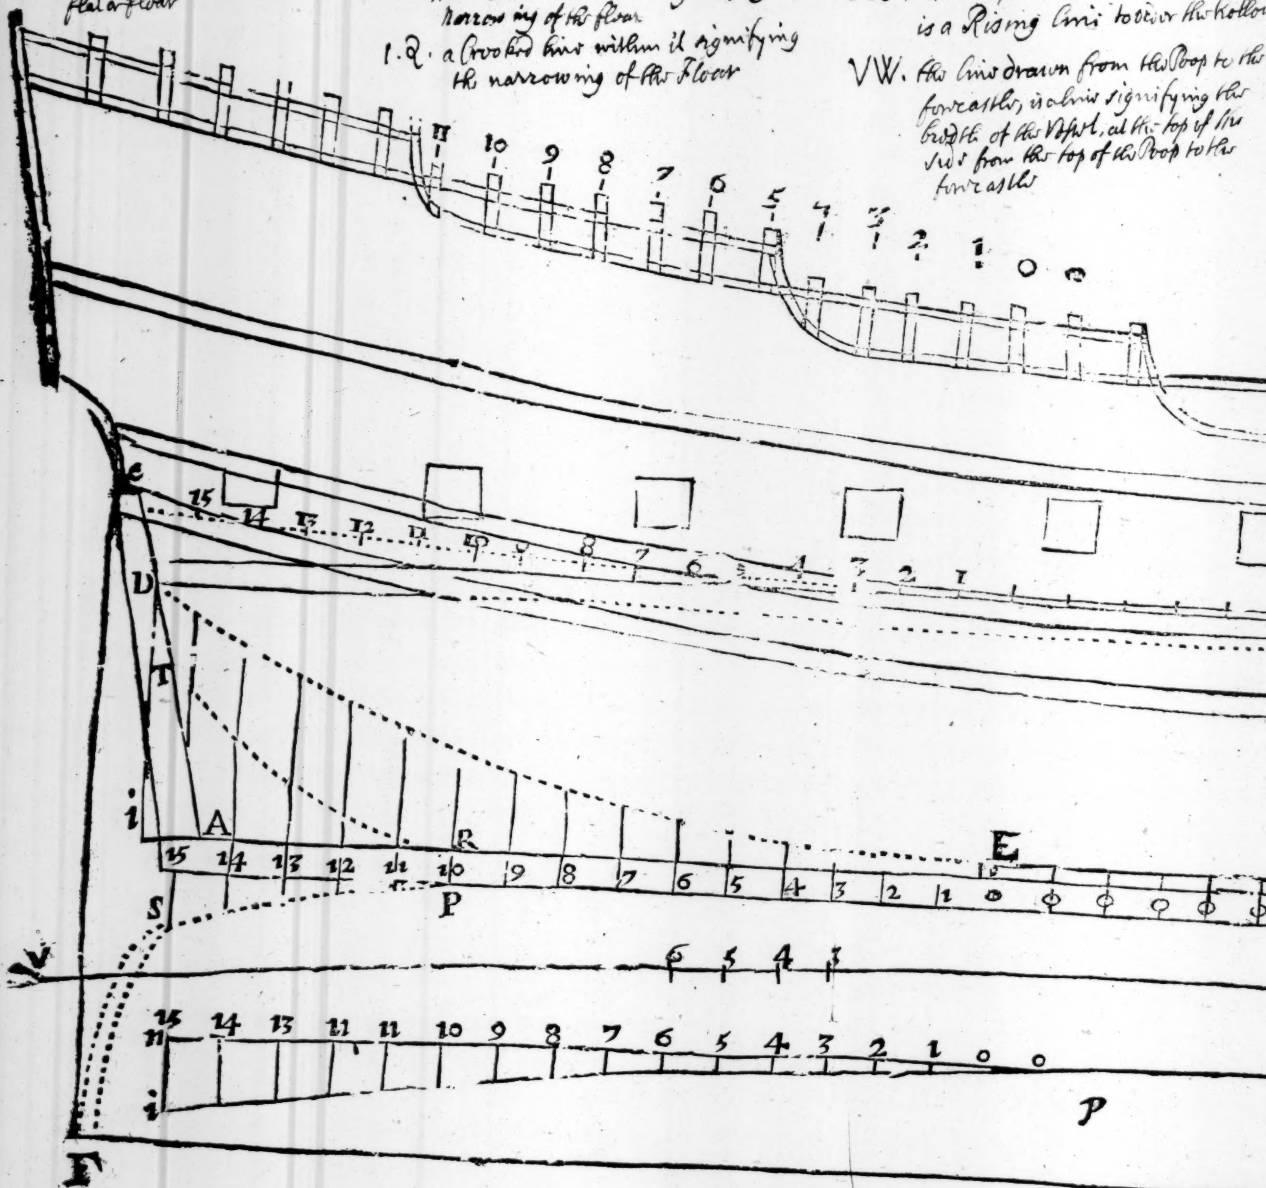 flat or floar
Narrowing of the floar
1. Q. a Crooked line within it signifying
the narrowing of the Floar
is a Rising line to order the hollow
VW. the line drawn from the Poop to the
forecastle, is a line signifying the
bredth of the Vessel, at the top of the
side from the top of the Poop to the
forecastle
11 10 9 8 7 6 5 4 3 2 1 0 0
e
15 14 13 12 11 10 9 8 7 6 4 3 2 1
D
T
i A R E
15 14 13 12 11 10 9 8 7 6 5 4 3 2 1 0 0 0 0 0 0
S P
V 6 5 4 3
15 14 13 11 11 10 9 8 7 6 5 4 3 2 1 0 0
n
i P
F